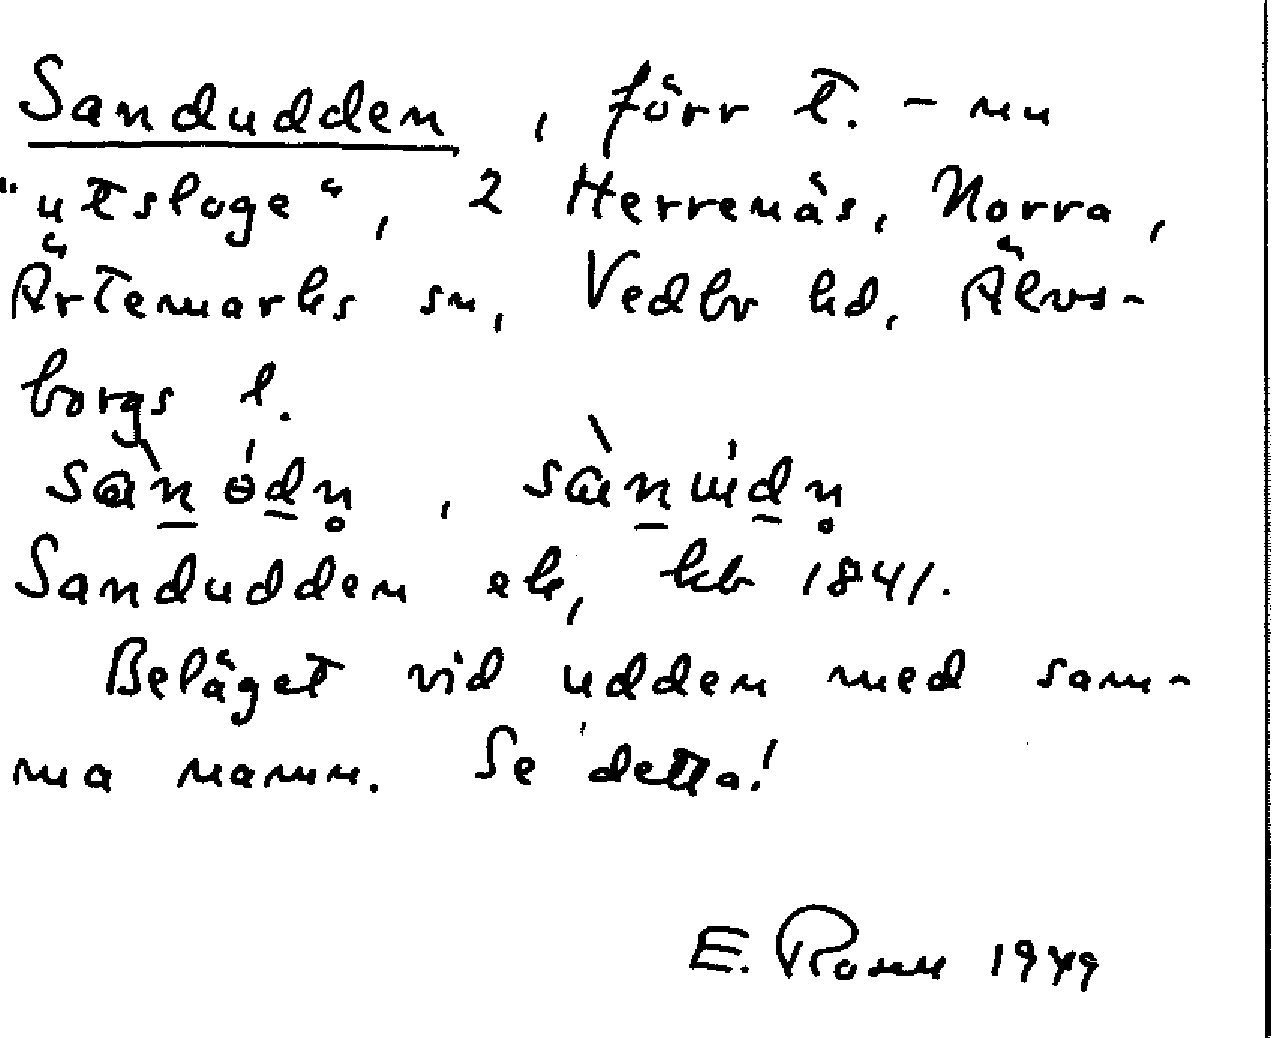 Sandudden, förr t. - nu
"utsloge", 2 Herrenäs, Norra,
Ärtemarks sn, Vedbo hd, Älvs-
borgs l.
sàn ódn̥, sànúdn̥
Sandudden eh, kb 1841.
Beläget vid udden med sam-
ma namn. Se detta!
E. Rosell 1949